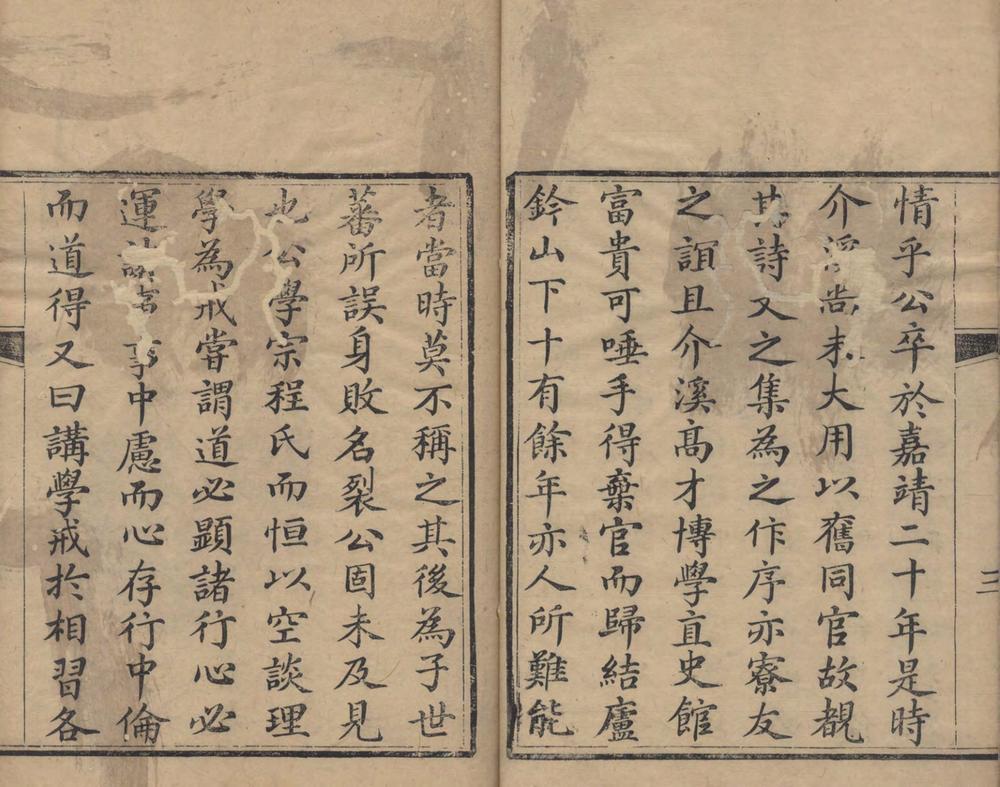 情乎公卒於嘉靖二十年是時
介溪尚未大用以舊同官故覩
其詩又之集為之作序亦寮友
之誼且介溪高才博學直史館
富貴可唾手得棄官而歸結廬
鈐山下十有餘年亦人所難能
三
者當時莫不稱之其後為子世
蕃所誤身敗名裂公固未及見
也公學宗程氏而恒以空談理
學為戒嘗謂道必顯諸行心必
運事中慮而心存行中倫
而道得又曰講學戒於相習各